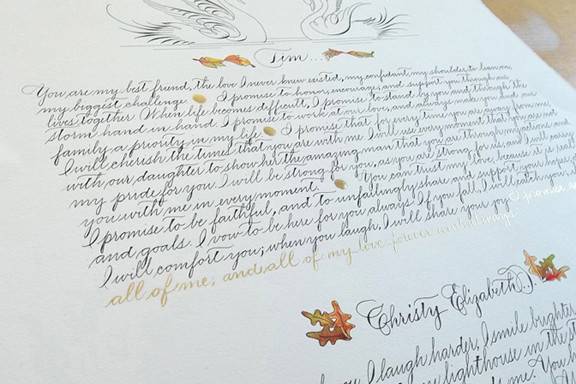 Tim...
You are my best friend, the love I never knew existed, my confidant, my shoulder to lean on,
my biggest challenge. I promise to honor, encourage, and support you through our
lives together. When life becomes difficult, I promise to stand by you and through the
storm hand in hand. I promise to work at our love, and always make you and our
family a priority in my life. I promise that for every time you are away from me,
I will cherish the times that you are with me. I will use every moment that you are not
with our daughter to show her the amazing man that you are through my actions and
my pride for you. I will be strong for you, as you are strong for us, and I will carry
you with me in every moment. You can trust my love, because it is real.
I promise to be faithful, and to unfailingly share and support your hopes,
and goals. I vow to be here for you always. If you fall, I will catch you,
I will comfort you; when you laugh, I will share your joy.
all of me, and all of my love forever
Christy Elizabeth...
you I laugh harder, I smile brighter
lighthouse in the
me. You